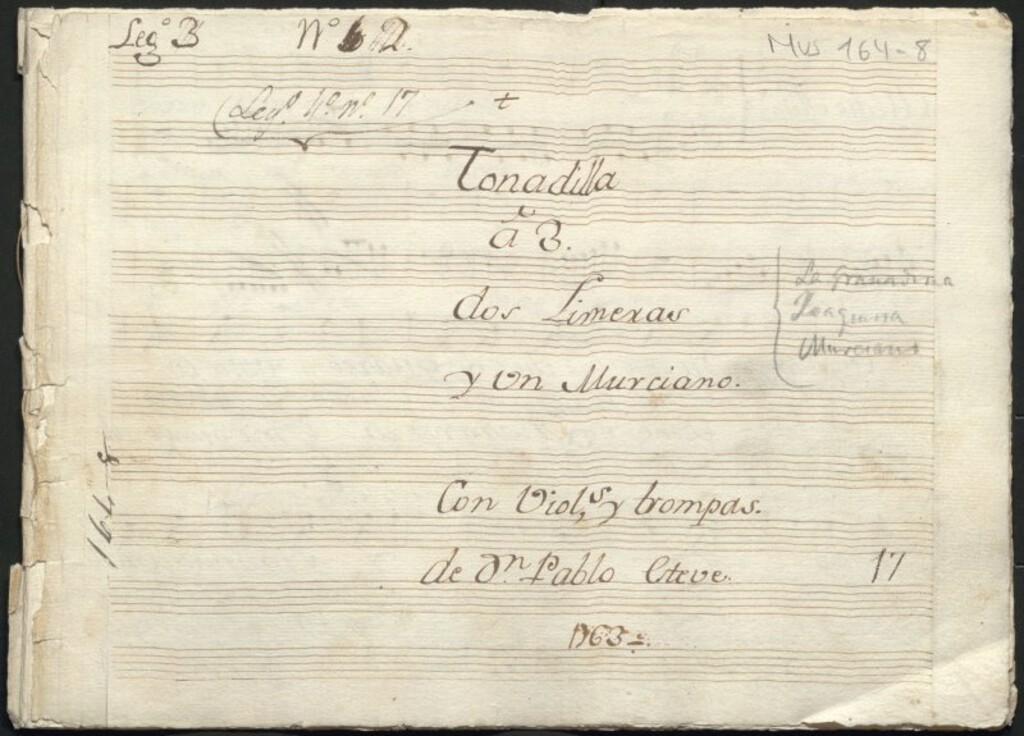 Leg.º 3 Nº 2.
Mus 164-8
(Leg.º 4º nº 17
+
Tonadilla
â 3.
dos Limeras
y Un Murciano.
La Granadina
Joaquina
Murciano
Con Viol,ˢ y trompas.
de Dⁿ Pablo Esteve.
17
1763=
164-8